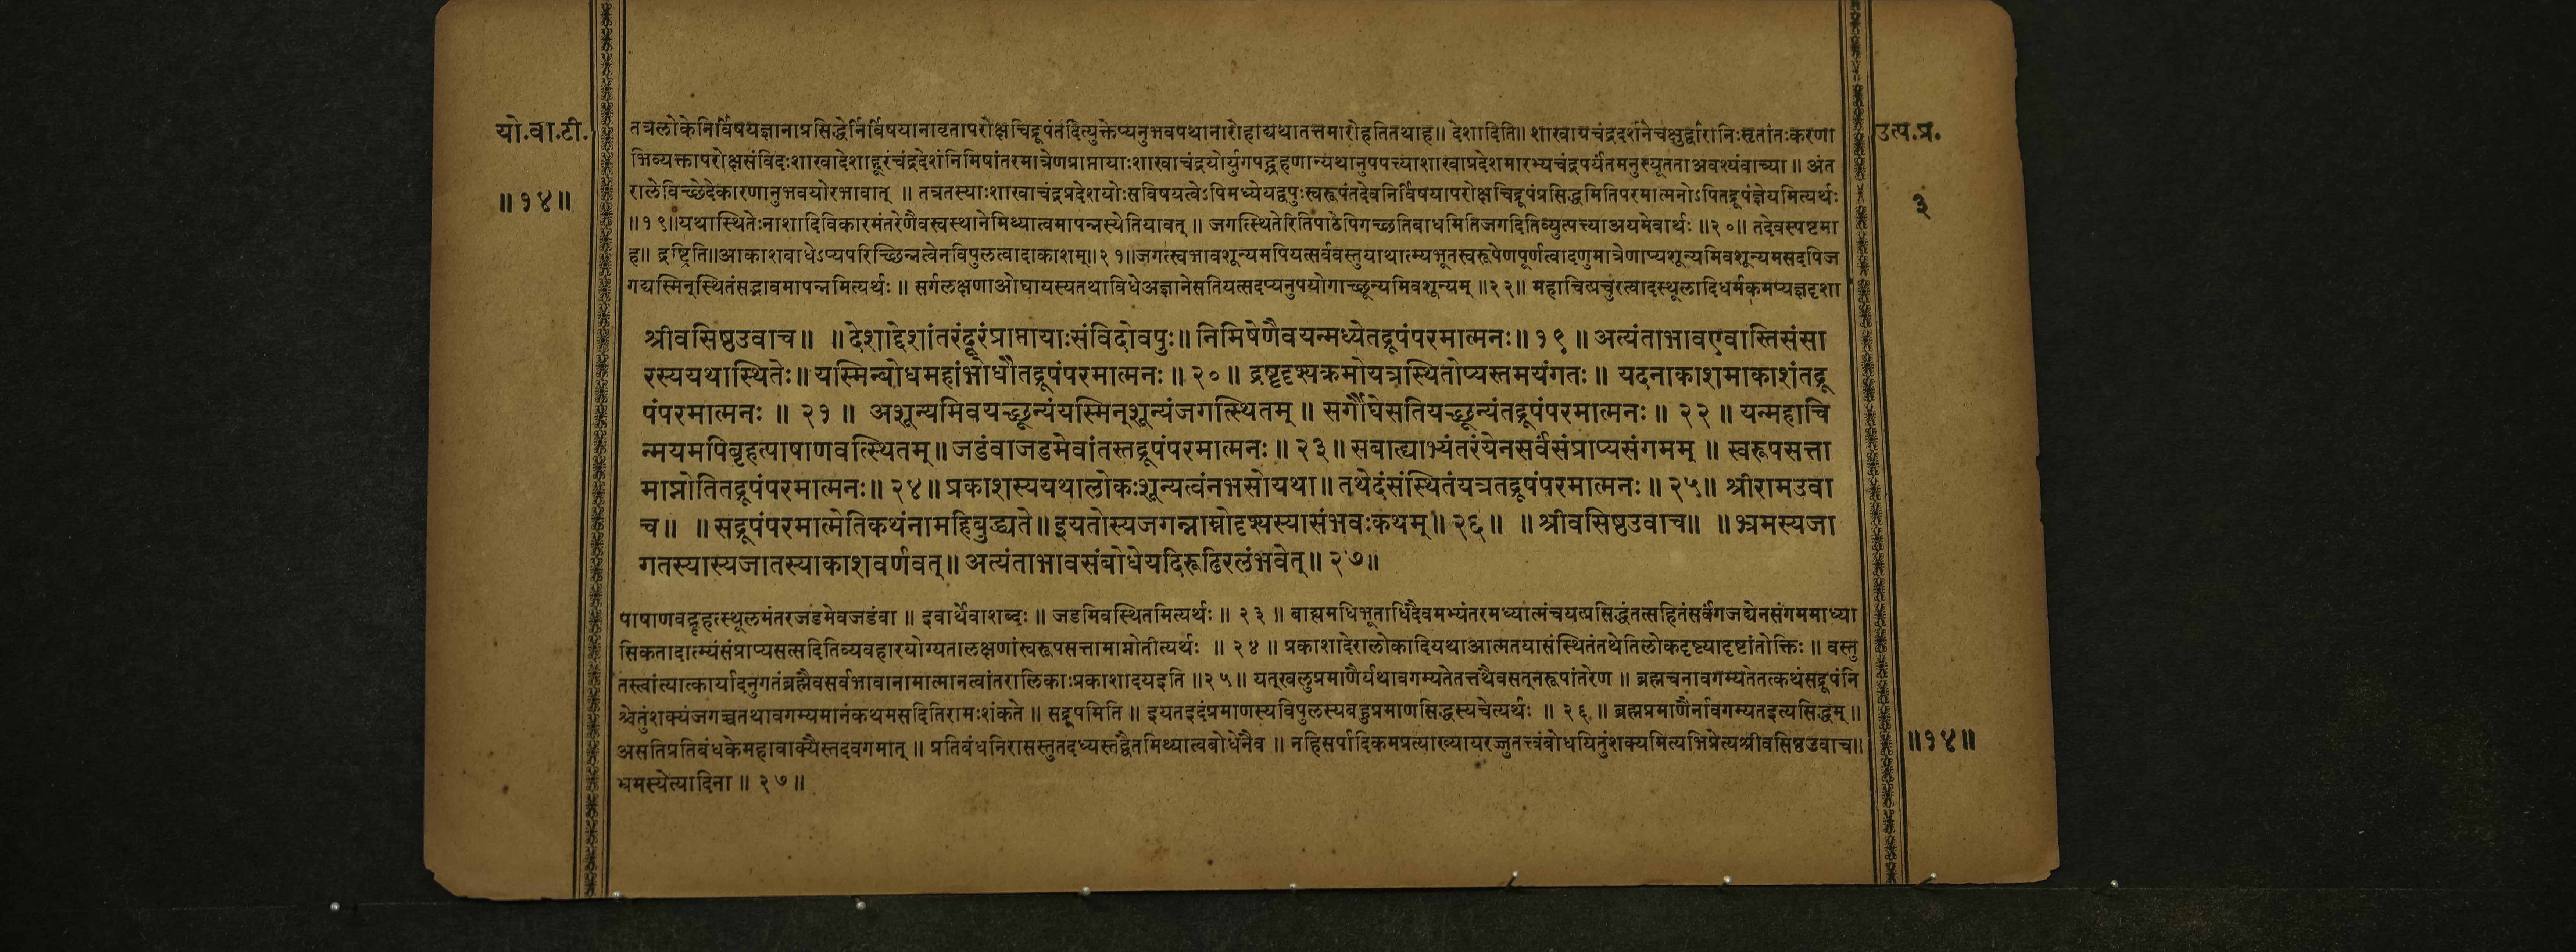 यो.वा.टी.
॥१४॥
उत्प.प्र.
३
तत्रलोकेनिर्विषयज्ञानाप्रसिद्धेर्निर्विषयानावृतापरोक्षचिद्रूपंतदित्युक्तेप्यनुभवपथानारोहाद्यथातत्तमारोहतितथाह॥ देशादिति॥ शाखायचंद्रदर्शनेचक्षुर्द्वारानिःसृतांतःकरणा
भिव्यक्तापरोक्षसंविदःशाखादेशाद्दूरंचंद्रदेशंनिमिषांतरमात्रेणप्राप्तायाःशाखाचंद्रयोर्युगपद्ग्रहणान्यथानुपपत्त्याशाखाप्रदेशमारभ्यचंद्रपर्यंतमनुस्यूतताअवश्यंवाच्या ॥ अंत
रालेविच्छेदेकारणानुभवयोरभावात् ॥ तत्रतस्याःशाखाचंद्रप्रदेशयोःसविषयत्वेऽपिमध्येयद्वपुःस्वरूपंतदेवनिर्विषयापरोक्षचिद्रूपंप्रसिद्धमितिपरमात्मनोऽपितद्रूपंज्ञेयमित्यर्थः
॥१९॥यथास्थितेःनाशादिविकारमंतरेणैवस्वस्थानेमिथ्यात्वमापन्नस्येतियावत् ॥ जगत्स्थितेरितिपाठेपिगच्छतिबाधमितिजगदितिव्युत्पत्त्याअयमेवार्थः ॥२०॥ तदेवस्पष्टमा
ह॥ द्रष्ट्रिति॥आकाशबाधेऽप्यपरिच्छिन्नत्वेनविपुलत्वादाकाशम्॥२१॥जगत्स्वभावशून्यमपियत्सर्ववस्तुयाथात्म्यभूतस्वरूपेणपूर्णत्वादणुमात्रेणाप्यशून्यमिवशून्यमसदपिज
गद्यस्मिन्स्थितंसद्भावमापन्नमित्यर्थः ॥ सर्गलक्षणाओघायस्यतथाविधेअज्ञानेसतियत्सदप्यनुपयोगाच्छून्यमिवशून्यम् ॥२२॥ महाचित्प्रचुरत्वादस्थूलादिधर्मकमप्यज्ञदृशा
श्रीवसिष्ठउवाच॥ ॥देशाद्देशांतरंदूरंप्राप्तायाःसंविदोवपुः॥ निमिषेणैवयन्मध्येतद्रूपंपरमात्मनः॥ १९ ॥ अत्यंताभावएवास्तिसंसा
रस्ययथास्थितेः॥ यस्मिन्बोधमहांभोधौतद्रूपंपरमात्मनः ॥ २० ॥ द्रष्टृदृश्यक्रमोयत्रस्थितोप्यस्तमयंगतः ॥ यदनाकाशमाकाशंतद्रू
पंपरमात्मनः ॥ २१ ॥ अशून्यमिवयच्छून्यंयस्मिन्शून्यंजगत्स्थितम् ॥ सर्गौघेसतियच्छून्यंतद्रूपंपरमात्मनः ॥ २२ ॥ यन्महाचि
न्मयमपिबृहत्पाषाणवत्स्थितम्॥ जडंवाजडमेवांतस्तद्रूपंपरमात्मनः ॥ २३ ॥ सबाह्याभ्यंतरंयेनसर्वंसंप्राप्यसंगमम् ॥ स्वरूपसत्ता
माप्नोतितद्रूपंपरमात्मनः॥ २४॥ प्रकाशस्ययथालोकःशून्यत्वंनभसोयथा॥ तथेदंसंस्थितंयत्रतद्रूपंपरमात्मनः ॥ २५॥ श्रीरामउवा
च॥ ॥ सद्रूपंपरमात्मेतिकथंनामहिबुद्ध्यते॥ इयतोस्यजगन्नाम्नोदृश्यस्यासंभवःकथम्॥ २६॥ ॥ श्रीवसिष्ठउवाच॥ ॥ भ्रमस्यजा
गतस्यास्यजातस्याकाशवर्णवत्॥ अत्यंताभावसंबोधेयदिरूढिरलंभवेत्॥ २७॥
पाषाणवद्बृहत्स्थूलमंतरजडमेवजडंवा ॥ इवार्थेवाशब्दः ॥ जडमिवस्थितमित्यर्थः ॥ २३ ॥ बाह्यमधिभूताधिदैवमभ्यंतरमध्यात्मंचयत्प्रसिद्धंतत्सहितंसर्वंगजद्येनसंगममाध्या
सिकतादात्म्यंसंप्राप्यसत्सदितिव्यवहारयोग्यतालक्षणांस्वरूपसत्तामाप्नोतीत्यर्थः ॥ २४ ॥ प्रकाशादेरालोकादियथाआत्मतयासंस्थितंतथेतिलोकदृष्ट्यादृष्टांतोक्तिः ॥ वस्तु
तस्त्वांत्यात्कार्यादनुगतंब्रह्मैवसर्वभावानामात्मानत्वांतरालिकाःप्रकाशादयइति ॥२५॥ यत्खलुप्रमाणैर्यथावगम्यतेतत्तथैवसत्नरूपांतरेण ॥ ब्रह्मचनावगम्यतेतत्कथंसद्रूपंनि
श्चेतुंशक्यंजगच्चतथावगम्यमानंकथमसदितिरामःशंकते ॥ सद्रूपमिति ॥ इयतइदंप्रमाणस्यविपुलस्यबहुप्रमाणसिद्धस्यचेत्यर्थः ॥ २६ ॥ ब्रह्मप्रमाणैर्नावगम्यतइत्यसिद्धम् ॥
असतिप्रतिबंधकेमहावाक्यैस्तदवगमात् ॥ प्रतिबंधनिरासस्तुतदध्यस्तद्वैतमिथ्यात्वबोधेनैव ॥ नहिसर्पादिकमप्रत्याख्यायरज्जुतत्त्वंबोधयितुंशक्यमित्यभिप्रेत्यश्रीवसिष्ठउवाच॥
भ्रमस्येत्यादिना ॥ २७॥
॥१४॥